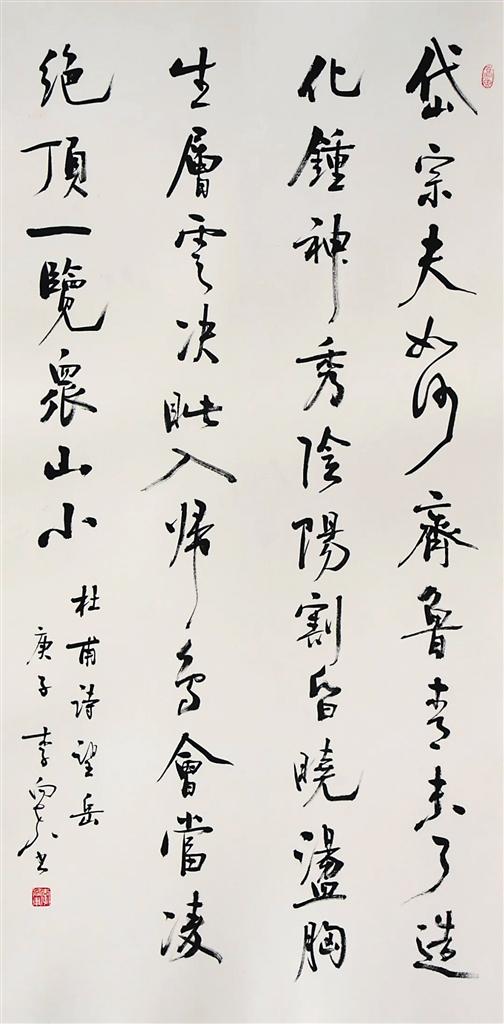 岱宗夫如何齊魯青未了造
化鍾神秀陰陽割昏曉盪胸
生層雲决眦入帰鳥會當凌
絶頂一覽眾山小
杜甫詩望岳
庚子李向书